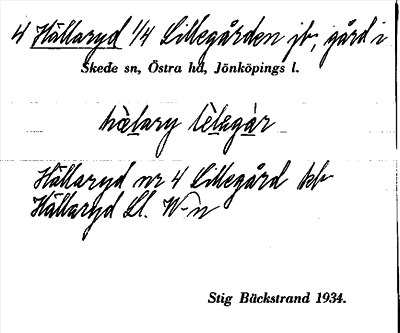 4 Hällaryd 1/4 Lillegården jb, gård i
Skede sn, Östra hd, Jönköpings l.
hælary lèlagár
Hällaryd nr 4 Lillegård kb
Hällaryd Ll. W-n
Stig Bäckstrand 1934.